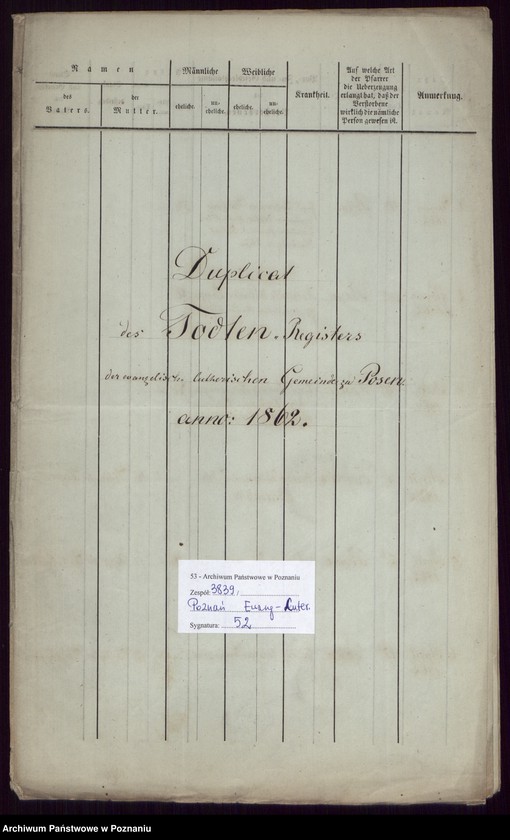 Namen
Männliche
Weibliche
des
Vaters.
der
Mutter.
eheliche.
un-
eheliche.
eheliche.
un-
eheliche.
Krankheit.
Auf welche Art
der Pfarrer
die Ueberzeugung
erlangt hat, daß der
Verstorbene
wirklich die nämliche
Person gewesen ist.
Anmerkung.
Duplicat
des Todten-Registers
der evangelisch-lutherischen Gemeinde zu Posen
anno: 1862.
53 - Archiwum Państwowe w Poznaniu
Zespół: 3839,
Poznań Ewang-Luter.
Sygnatura: 52
Archiwum Państwowe w Poznaniu